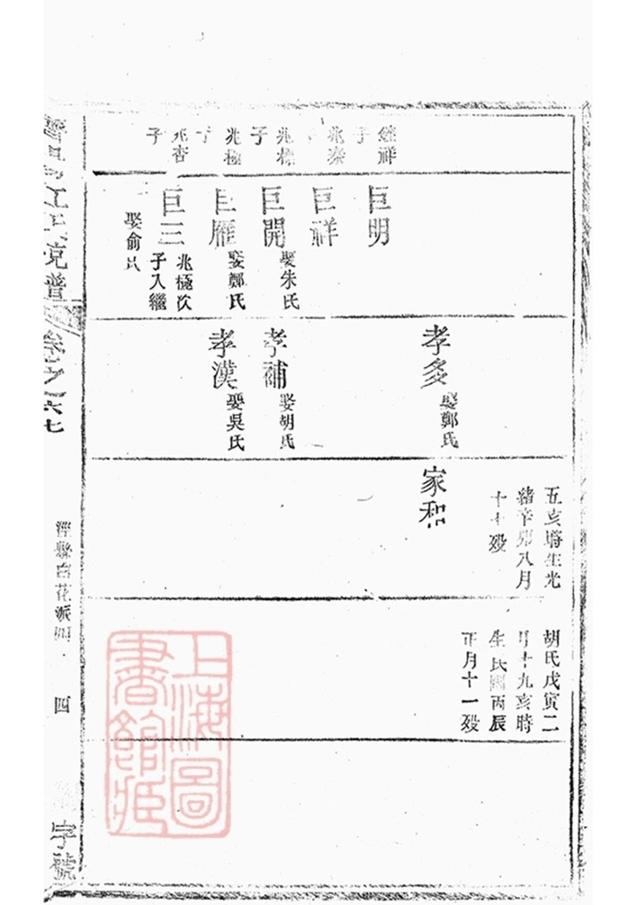 祥
子
兆泰
子
兆極
子
杏
子
巨明
巨祥
巨開
娶朱氏
巨雁
娶鄭氏
巨三
兆極次
子入繼
娶俞氏
孝多
娶鄭氏
孝補
娶胡氏
孝漢
娶吳氏
五亥時生光
緒辛卯八月
十七歿
家和
胡氏戊寅二
月十九亥時
生民國丙辰
正月十一歿
譜
卷之六七
涇縣花派四
四
字號
上海圖
書館藏